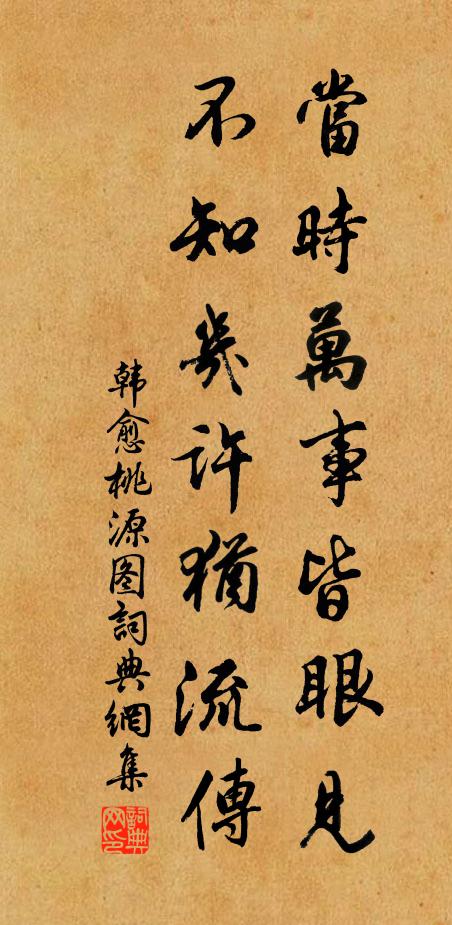 當時萬事皆眼見
不知幾許猶流傳
韩愈桃源图詞典網集
詞典网印